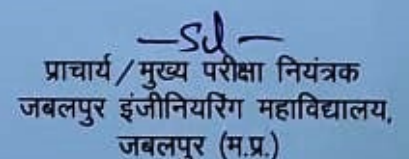 —Sd—
प्राचार्य / मुख्य परीक्षा नियंत्रक
जबलपुर इंजीनियरिंग महाविद्यालय,
जबलपुर (म.प्र.)